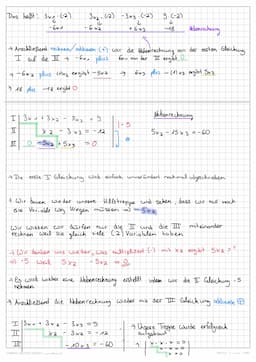 Das heißt: 3x₁·(-2) 3x₂·(-2) -3x₃·(-2) 9·(-2)
-6x₁ -6x₂ +6x₃ -18 Nebenrechnung
→ Anschließend rechnen/addieren (+) wir die Nebenrechnung von der ersten Gleichung
I auf die III → -6x₁ plus 6x₁ von der III ergibt 0
→ -6x₂ plus ergibt -5x₂ → 6x₃ plus ergibt 5x₃
→ 18 plus -18 ergibt 0
I 3x₁ + 3x₂ - 3x₃ = 9
II x₂ - 3x₃ = -12 ·5
III 0 -5x₂ + 5x₃ = 0
Nebenrechnung
5x₂ - 15x₃ = -60
→ Die erste I Gleichung wird einfach unverändert normal abgeschrieben
→ Wir bauen wieder unsere Hilfstreppe und sehen, dass wir nur noch
die Variable weg kriegen müssen → -5x₂
Wir wissen wir dürfen nur die II und die III miteinander
rechnen weil sie gleich viele (2) Variablen haben
→ Wir denken uns weiter, was multipliziert (·) mit x₂ ergibt 5x₂ = ?
→ ·5 weil 5x₂ - 5x₂ = 0
→ Es wird wieder eine Nebenrechnung erstellt indem wir die II Gleichung ·5
nehmen
→ Anschließend die Nebenrechnung wieder mit der III Gleichung addieren +
I 3x₁ + 3x₂ - 3x₃ = 9
II x₂ - 3x₃ = -12
III -10x₃ = -60
→ Unsere Treppe wurde erfolgreich
aufgebaut